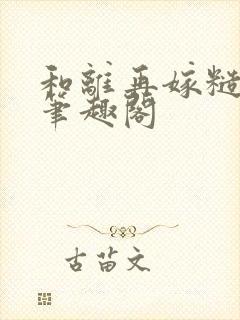 和離再嫁糙
筆趣閣
古苗文